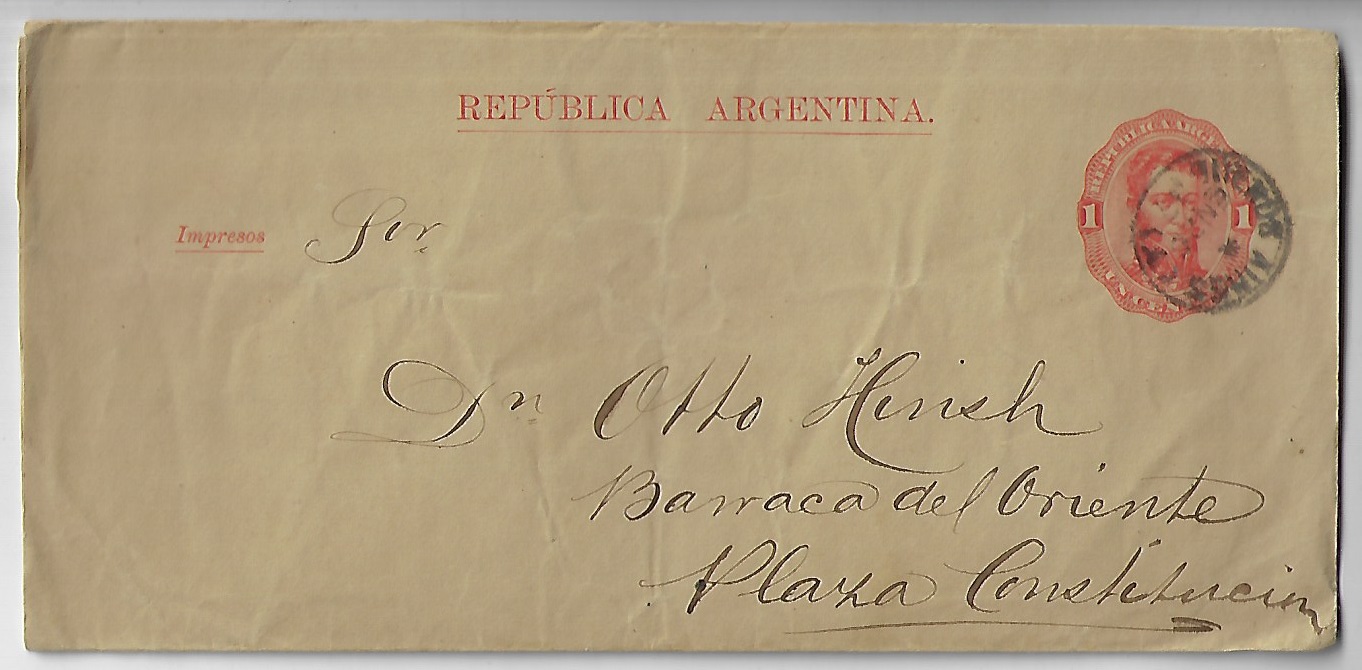 REPÚBLICA ARGENTINA.
REPUBLICA ARGE
1 1
UN CEN
BUENOS AIRES
Impresos Sor.
Dn Otto Hirsh
Barraca del Oriente
Plaza Constitucion